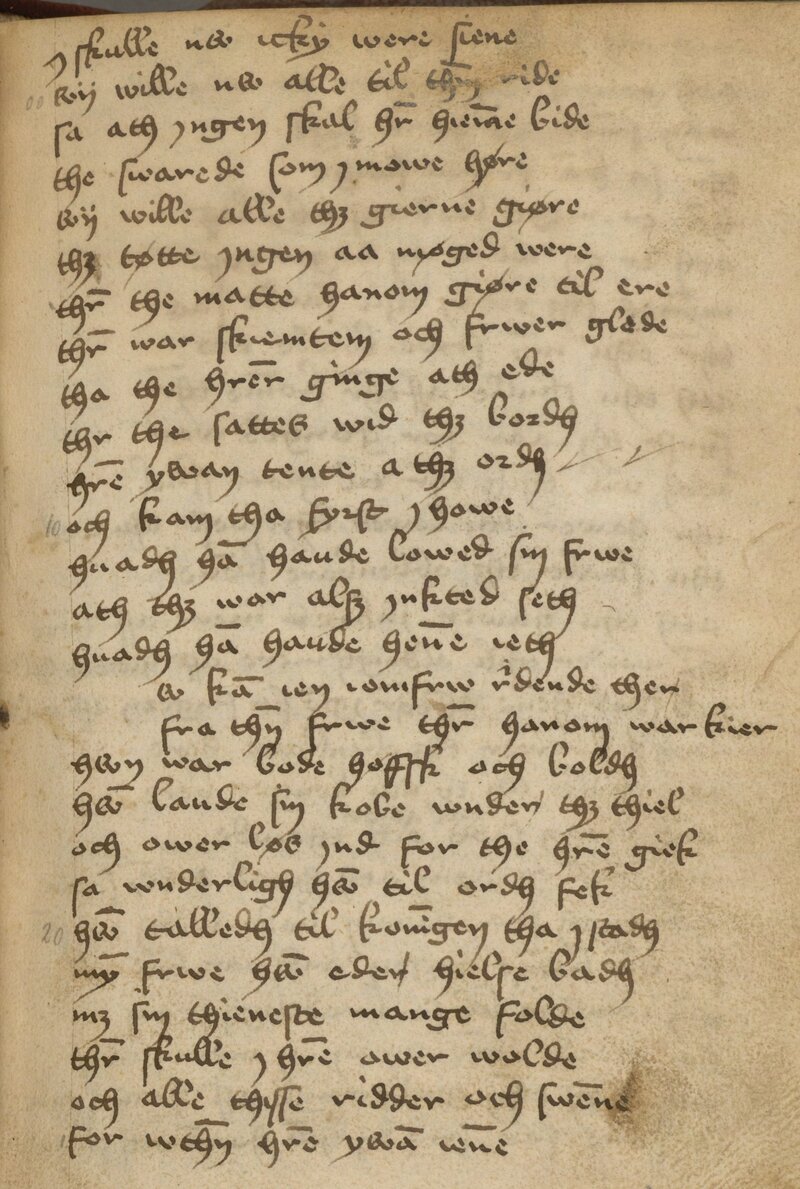 J skulle nw icky were siene
wij wille nw alle til thn̄ ride
sa ath jngen skal hr̄ hiem̄e bide
the swarede som j mowe høre
wij wille alle thꝫ gierne giøre
thꝫ tøtte jngen aa møged were
thr̄ the matte hanom giøre til ere
thr̄ war skiemtem och frwer glede
tha the hrēr ginge ath ede
thr the sattes wid thꝫ bordh
hrē ywan tente a thꝫ ordh
10 och kam tha fyrst j howe
huadh hā haude lowed sin frwe
ath thꝫ war alsꝫ jnkted seth
huadh hā haude hen̄e ieth
w kā ien iomfrw rdende ther
fra thn̄ frwe thr̄ hanom war kier
hwn war bode hoffsk och boldh
hw̄ laude sin kobe wnder thꝫ thiel
och ower løs jnd for the hrē giek
sa wnderligh hw̄ til ordh fek
20 hw̄ talledh til konīgen tha j stadh
mȳ frwe hw̄ eder hielse badh
mꝫ sin thieneste mange folde
thr̄ skulle j hrē ower wolde
och alle thisse ridder och swen̄e
for wthn̄ hrē ywā ien̄e